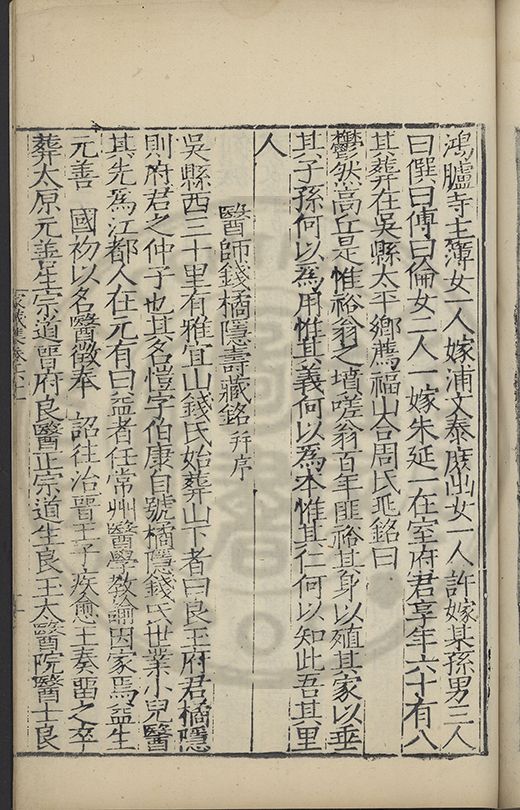 鴻臚寺主簿女一人嫁浦文泰庶出女一人許嫁某孫男三人
曰僎曰傅曰倫女二人一嫁朱延一在室府君享年六十有八
其葬在吳縣太平鄉薦福山合周氏兆銘曰
鬱然嵩丘是惟裕翁之墳嗟翁百年匪裕其身以殖其家以垂
其子孫何以為用惟其義何以為本惟其仁何以知此吾其里
人
醫師錢橘隱壽藏銘 并序
吳縣西三十里有雅宜山錢氏始葬山下者曰良玉府君橘隱
則府君之仲子也其名愷字伯康自號橘隱錢氏世業小兒醫
其先為江都人在元有曰益者任常州醫學教諭因家焉益生
元善 國初以名醫徵奉 詔往治晉王子疾愈王奏留之卒
葬太原元善生宗道晉府良醫正宗道生良玉太醫院醫士良